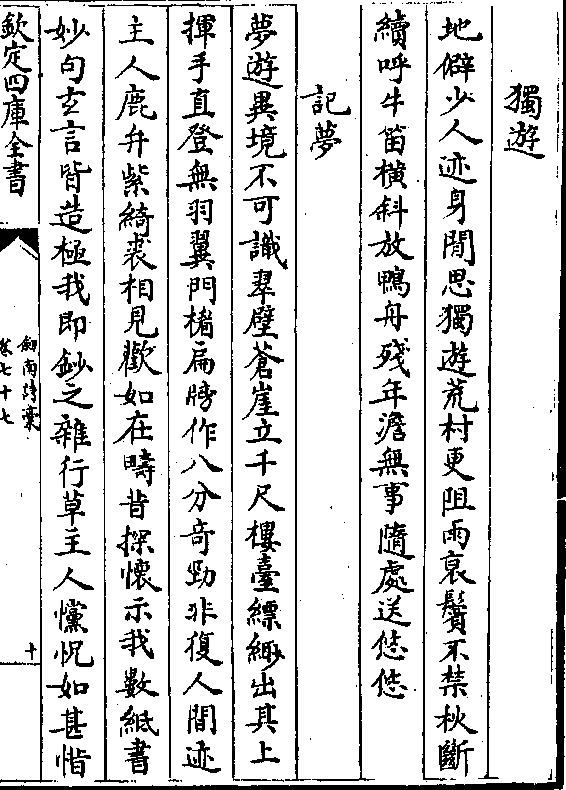 獨遊
地僻少人迹身閒思獨遊荒村更阻雨衰鬢不禁秋斷
續呼牛笛橫斜放鴨舟殘年澹無事隨處送悠悠
記夢
夢遊異境不可識翠壁蒼崖立千尺樓臺縹緲出其上
揮手直登無羽翼門楣扁牓作八分奇勁非復人間迹
主人鹿弁紫綺裘相見歡如在疇昔探懷示我數紙書
妙句玄言皆造極我即鈔之雜行草主人儻怳如甚惜
欽定四庫全書
劍南詩稾
卷七十七
十